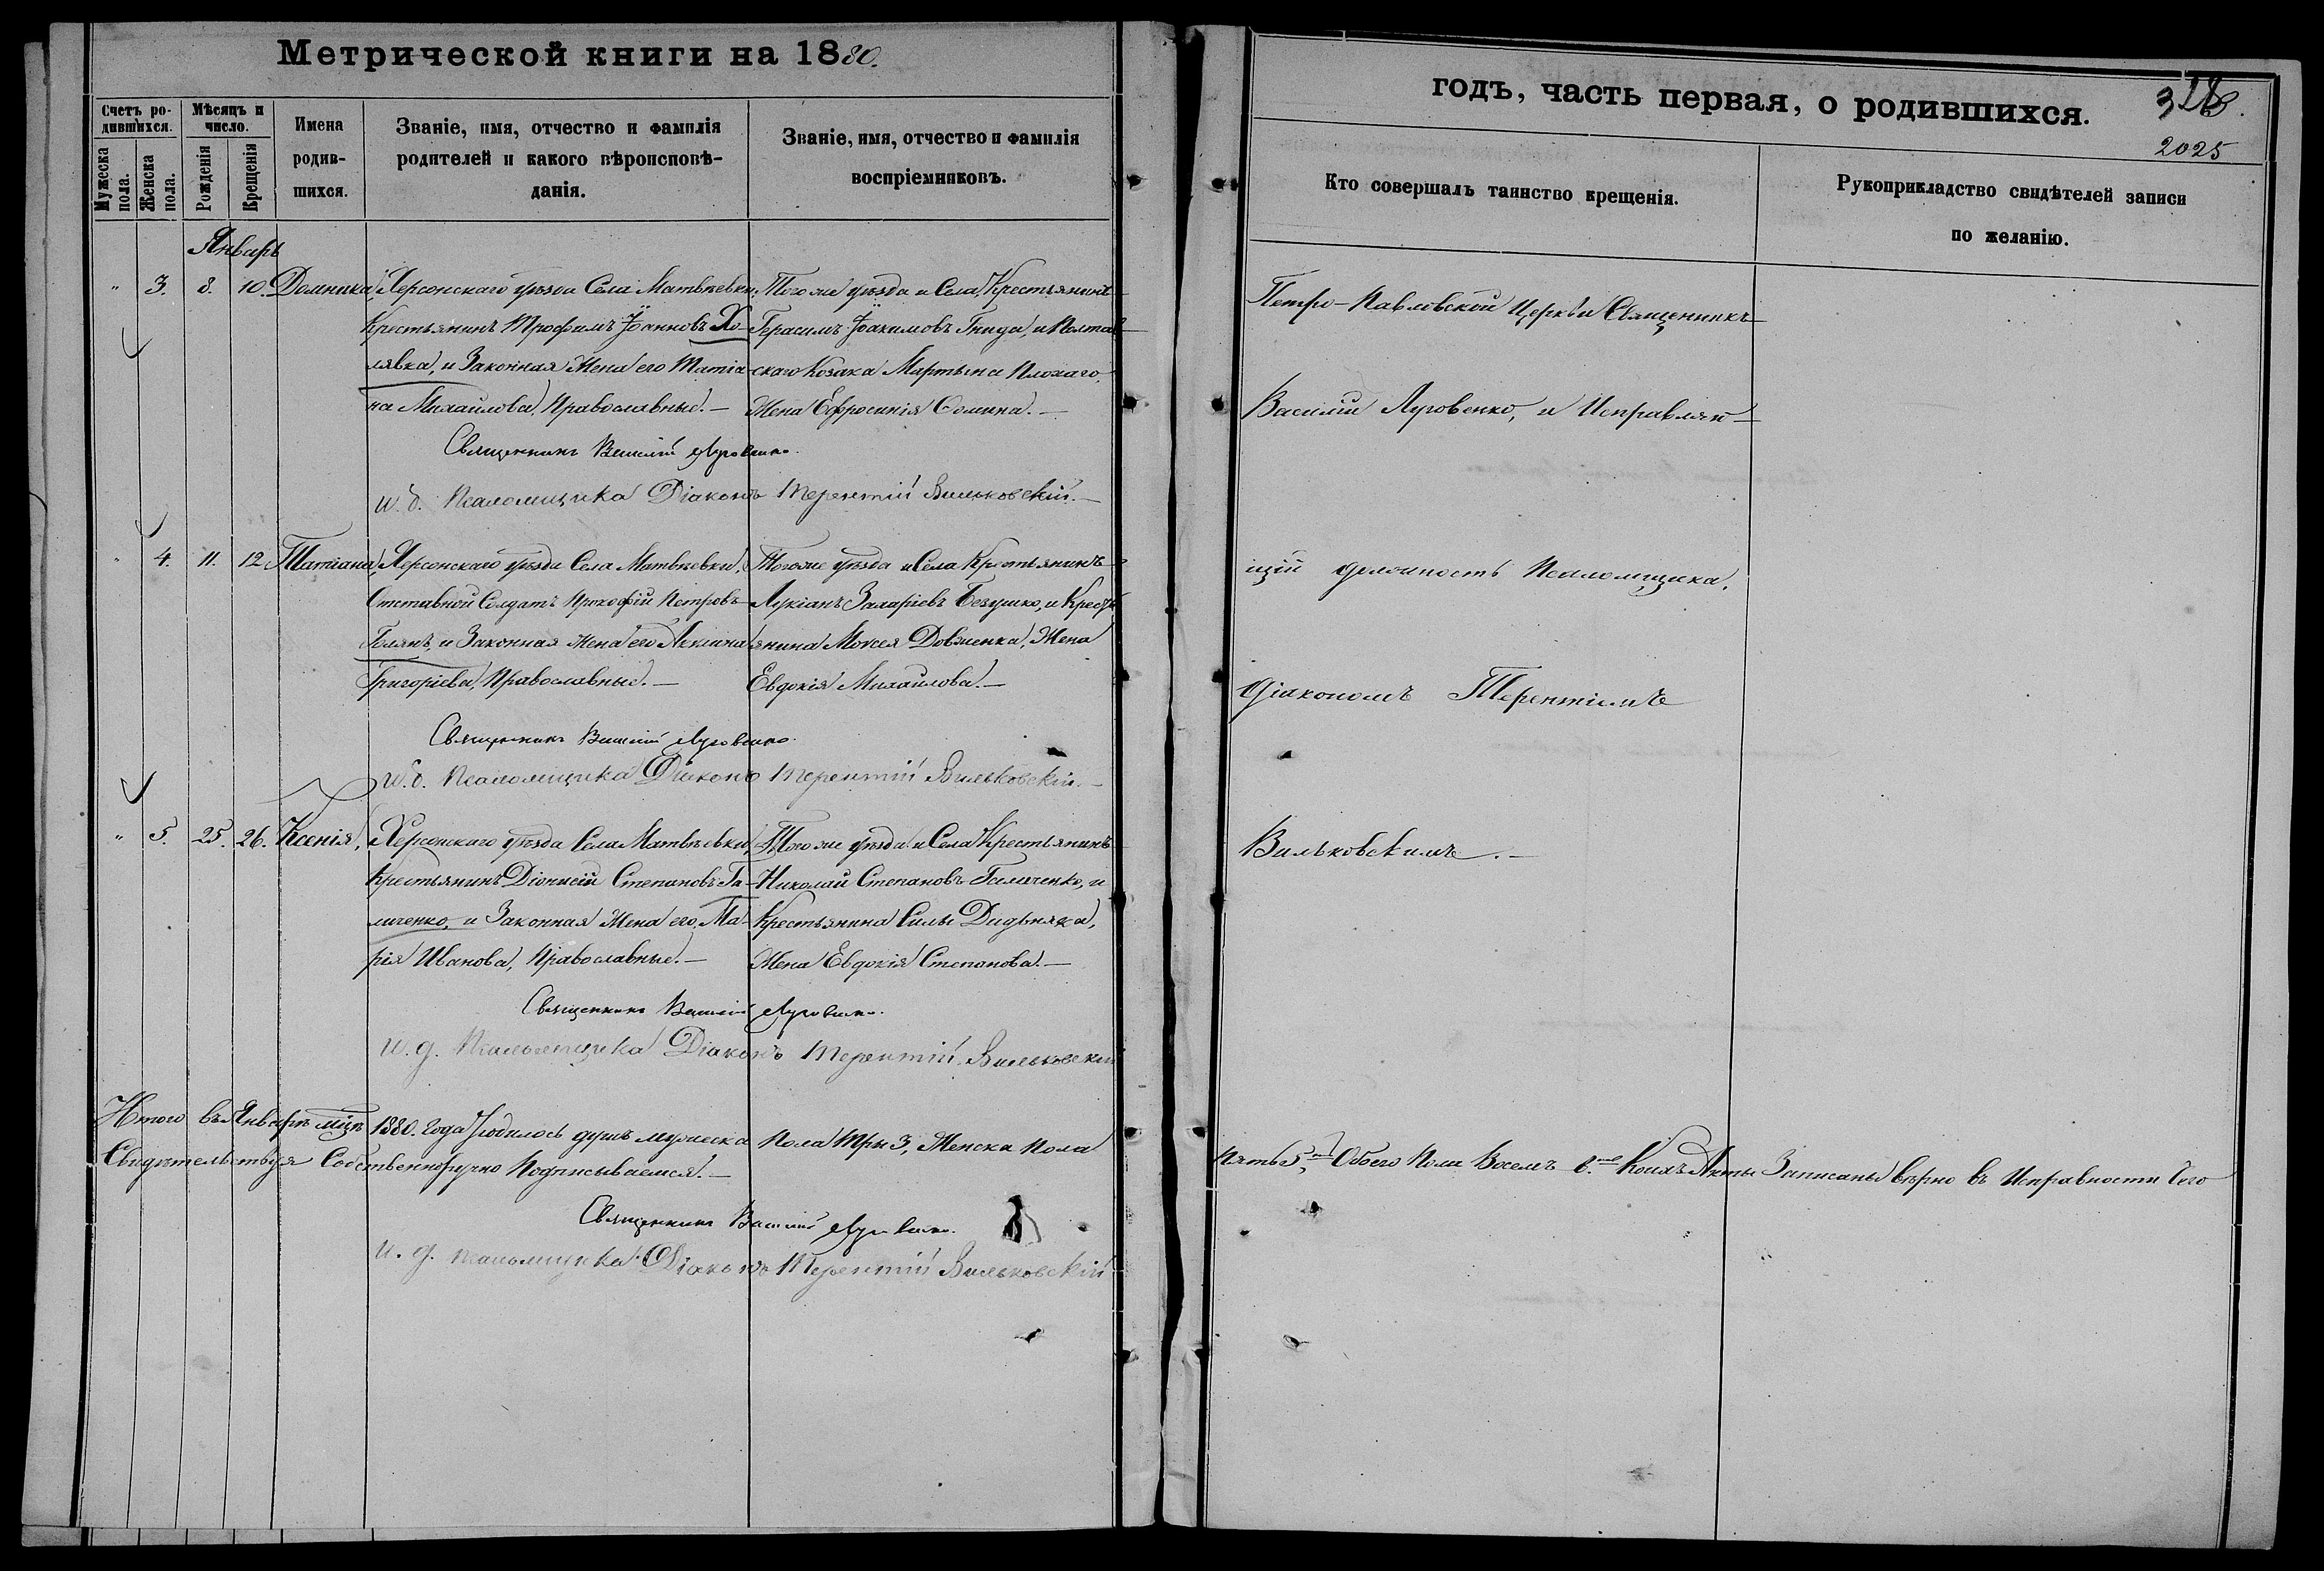 Метрической книги на 1880.
Счетъ родившихся.
Мѣсяцъ и число.
Мужеска пола.
Женска пола.
Рожденія
Крещенія
Имена родив-
шихся.
Званіе, имя, отчество и фамилія
родителей и какого вѣроисповѣ-
данія.
Званіе, имя, отчество и фамилія
воспріемниковъ.
Январь
" 3. 8. 10. Домника,
Херсонскаго уѣзда Села Матвѣевки,
Крестьянинъ Трофимъ Іоанновъ Хо-
лявка, и Законная Жена его Татіа-
на Михайлова, Православные. —
Того же уѣзда и Села, Крестьянинъ
Герасимъ Іоакимовъ Гнида, и Полтав-
скаго Козака Мартына Плохаго,
Жена Ефросинія Фомина. —
Священникъ Василій Луговенко.
И. д. Псаломщика Діаконъ Терентій Вильковскій. —
" 4. 11. 12. Татіана,
Херсонскаго уѣзда Села Матвѣевки,
Отставной Солдатъ Прокофій Петровъ
Голякъ, и Законная Жена его Акилина
Григоріева, Православные. —
Того же уѣзда и Села Крестьянинъ
Лукіанъ Захаріевъ Безушко, и Кресть-
янина Моисея Довженка, Жена
Евдокія Михайлова. —
Священникъ Василій Луговенко.
И. д. Псаломщика Діаконъ Терентій Вильковскій. —
" 5. 25. 26. Ксенія,
Херсонскаго уѣзда Села Матвѣевки,
Крестьянинъ Діонисій Степановъ Га-
личенко, и Законная Жена его Ма-
рія Иванова, Православные. —
Того же уѣзда и Села Крестьянинъ
Николай Степановъ Галиченко, и
Крестьянина Силы Дидыняка,
Жена Евдокія Степанова. —
Священникъ Василій Луговенко.
И. д. Псаломщика Діаконъ Терентій Вильковскій
Итого въ Январѣ мцѣ 1880. года Родилось душъ мужеска Пола Три 3, Женска Пола
Свидѣтельствуя Собственноручно Подписываемся. —
Священникъ Василій Луговенко.
И. д. псаломщика Діаконъ Терентій Вильковскій
годъ, часть первая, о родившихся.
2025
Кто совершалъ таинство крещенія.
Рукоприкладство свидѣтелей записи
по желанію.
Петро-Павловской Церкви Священникъ
Василій Луговенко, и Исправляю-
щій должность Псаломщика,
Діакономъ Терентіемъ
Вильковскимъ. —
Пять 5, Обоего Пола Восемь 8. Коихъ Акты Записаны вѣрно въ Исправности Чего